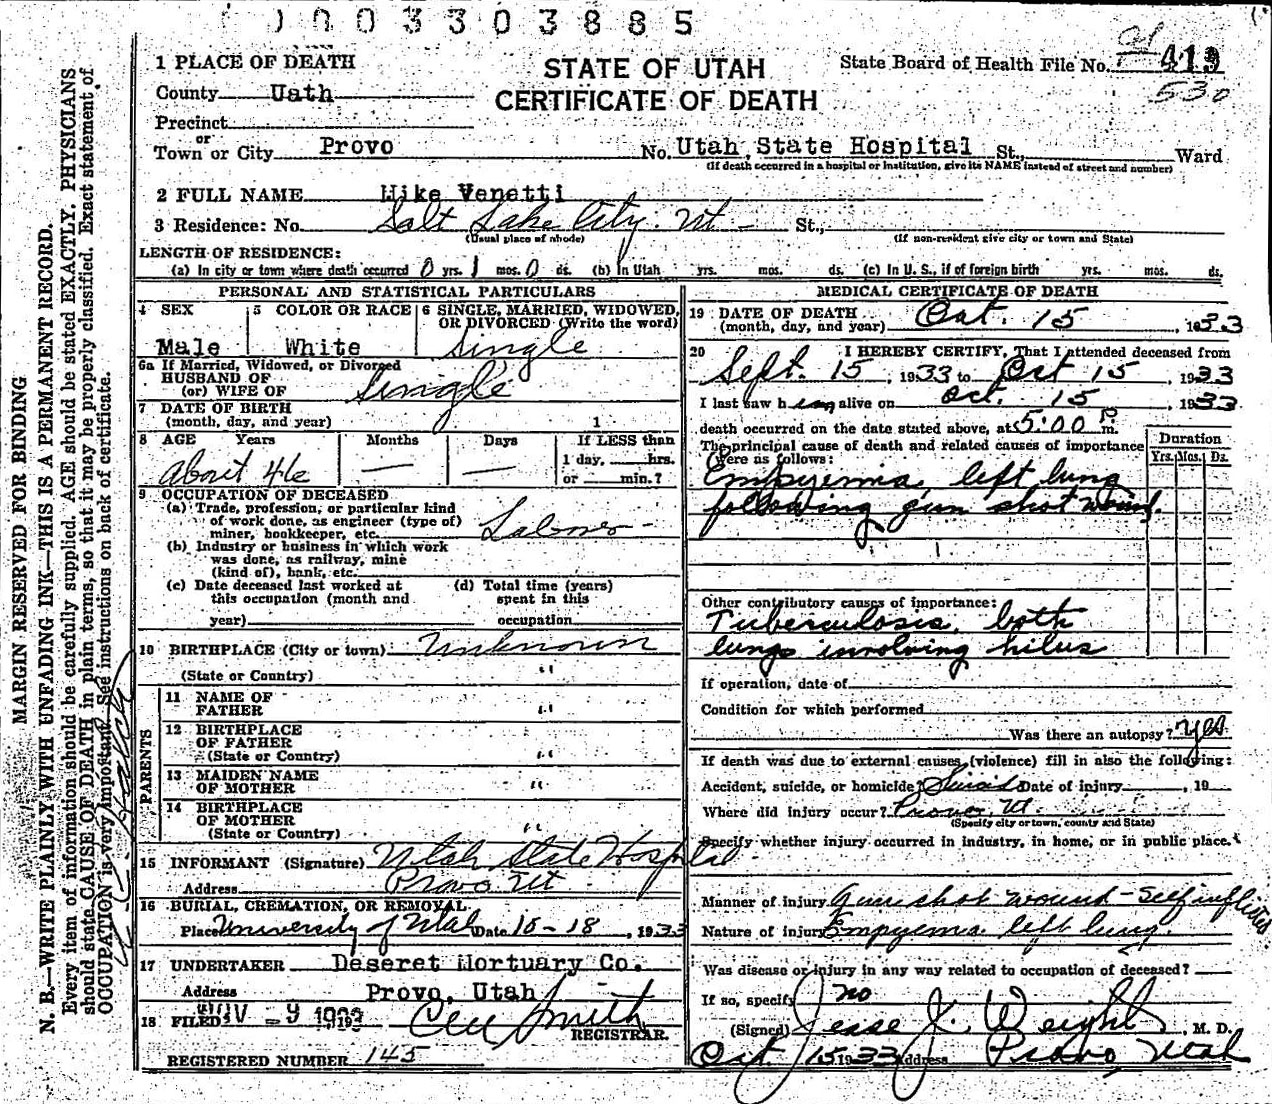 0003303885
STATE OF UTAH
CERTIFICATE OF DEATH
State Board of Health File No. 413
530
1 PLACE OF DEATH
County Uath
Precinct
or
Town or City Provo No. Utah State Hospital St., Ward
(If death occurred in a hospital or institution, give its NAME instead of street and number)
2 FULL NAME Mike Venetti
3 Residence: No. Salt Lake City. Ut - St.,
(Usual place of abode) (If non-resident give city or town and State)
LENGTH OF RESIDENCE:
(a) In city or town where death occurred 0 yrs. 1 mos. 0 ds. (b) In Utah yrs. mos. ds. (c) In U. S., if of foreign birth yrs. mos. ds.
PERSONAL AND STATISTICAL PARTICULARS
4 SEX 5 COLOR OR RACE 6 SINGLE, MARRIED, WIDOWED, OR DIVORCED (Write the word)
Male White Single
6a If Married, Widowed, or Divorced
HUSBAND OF
(or) WIFE OF Single
7 DATE OF BIRTH
(month, day, and year) 1
8 AGE Years Months Days If LESS than
1 day, hrs.
or min.?
About 46 — —
9 OCCUPATION OF DECEASED
(a) Trade, profession, or particular kind
of work done, as engineer (type of)
miner, bookkeeper, etc. Labor -
(b) Industry or business in which work
was done, as railway, mine
(kind of), bank, etc.
(c) Date deceased last worked at
this occupation (month and
year)
(d) Total time (years)
spent in this
occupation
10 BIRTHPLACE (City or town) Unknown
(State or Country) "
PARENTS
11 NAME OF
FATHER "
12 BIRTHPLACE
OF FATHER
(State or Country) "
13 MAIDEN NAME
OF MOTHER "
14 BIRTHPLACE
OF MOTHER
(State or Country) "
15 INFORMANT (Signature) Utah State Hospital
Address Provo Ut
16 BURIAL, CREMATION, OR REMOVAL
Place University of Utah Date 10-18, 1933
17 UNDERTAKER Deseret Mortuary Co.
Address Provo, Utah
18 FILED NOV - 9 1933 Smith
REGISTRAR.
REGISTERED NUMBER 145
MEDICAL CERTIFICATE OF DEATH
19 DATE OF DEATH
(month, day, and year) Oct. 15, 1933
20 I HEREBY CERTIFY, That I attended deceased from
Sept. 15, 1933 to Oct 15, 1933
I last saw him alive on Oct. 15, 1933
death occurred on the date stated above, at 5:00 P m.
The principal cause of death and related causes of importance
were as follows:
Duration
Yrs. Mos. Ds.
Empyema, left lung
following gun shot wound.
Other contributory causes of importance:
Tuberculosis, both
lungs involving hilus
If operation, date of
Condition for which performed
Was there an autopsy? yes
If death was due to external causes (violence) fill in also the following:
Accident, suicide, or homicide? Suicide Date of injury , 19
Where did injury occur? Provo, Ut.
(Specify city or town, county and State)
Specify whether injury occurred in industry, in home, or in public place.
Manner of injury Gun shot wound - Self inflicted
Nature of injury Empyema left lung.
Was disease or injury in any way related to occupation of deceased?
If so, specify no
(Signed) Jesse J. Weight, M. D.
Oct 15 1933 Address Provo, Utah
MARGIN RESERVED FOR BINDING
N. B.—WRITE PLAINLY WITH UNFADING INK—THIS IS A PERMANENT RECORD.
Every item of information should be carefully supplied. AGE should be stated EXACTLY. PHYSICIANS
should state CAUSE OF DEATH in plain terms, so that it may be properly classified. Exact statement of
OCCUPATION is very important. See instructions on back of certificate.